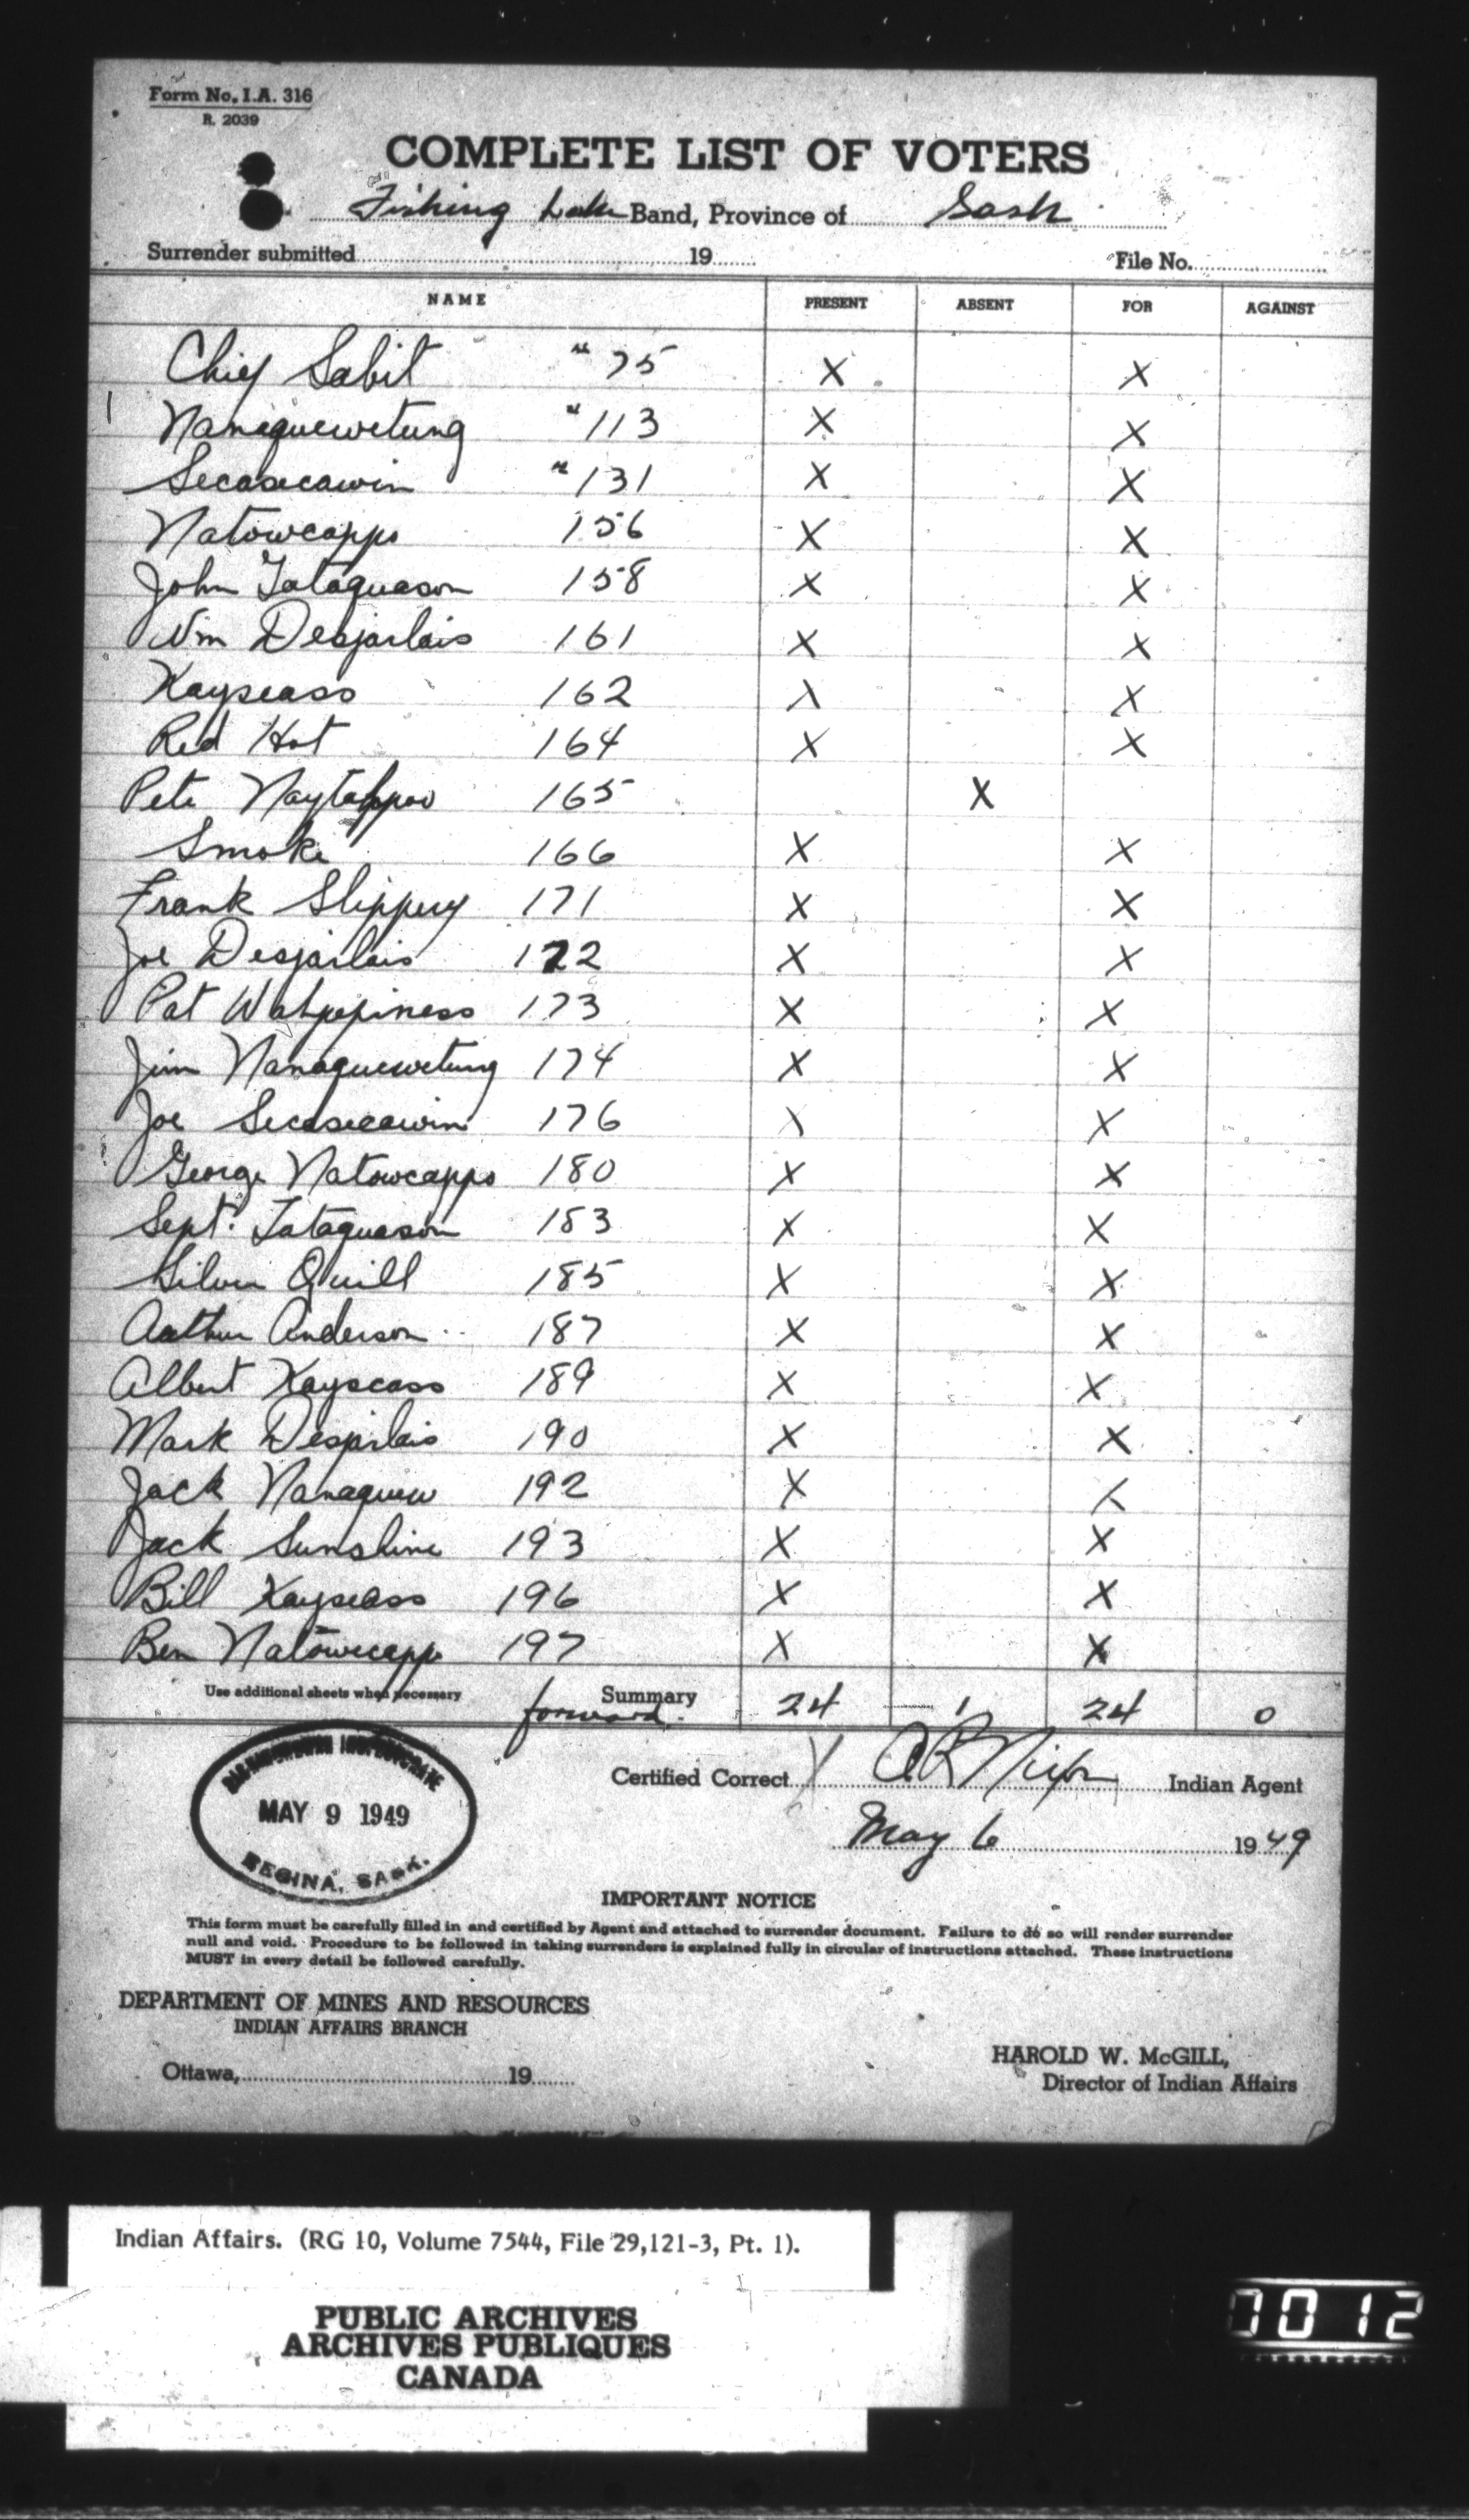 Form No. I.A. 316
R. 2039
COMPLETE LIST OF VOTERS
Fishing Lake Band, Province of Sask
Surrender submitted 19 File No.
NAME PRESENT ABSENT FOR AGAINST
Chief Sabit # 75 X X
1 Nanaquewetung # 113 X X
Secasecawin # 131 X X
Natowcapps 156 X X
John Tataquason 158 X X
Wm Desjarlais 161 X X
Kayseass 162 X X
Red Hat 164 X X
Pete 165 X
Smoke 166 X X
Frank Slippery 171 X X
Joe Desjarlais 172 X X
Pat Wahpepiness 173 X X
Jim Nanaquewetung 174 X X
Joe Secasecawin 176 X X
George Natowcapps 180 X X
Sept. Tataquason 183 X X
Silver Quill 185 X X
Arthur Anderson 187 X X
Albert Kayseass 189 X X
Mark Desjarlais 190 X X
Jack Nanaquew 192 X X
Jack Sunshine 193 X X
Bill Kayseass 196 X X
Ben Natowcapp 197 X X
Use additional sheets when necessary Summary 24 1 24 0
forward.
Certified Correct Indian Agent
May 6 1949
MAY 9 1949
REGINA, SASK.
IMPORTANT NOTICE
This form must be carefully filled in and certified by Agent and attached to surrender document. Failure to do so will render surrender
null and void. Procedure to be followed in taking surrenders is explained fully in circular of instructions attached. These instructions
MUST in every detail be followed carefully.
DEPARTMENT OF MINES AND RESOURCES
INDIAN AFFAIRS BRANCH
Ottawa, 19
HAROLD W. McGILL,
Director of Indian Affairs
Indian Affairs. (RG 10, Volume 7544, File 29,121-3, Pt. 1).
PUBLIC ARCHIVES
ARCHIVES PUBLIQUES
CANADA
0012